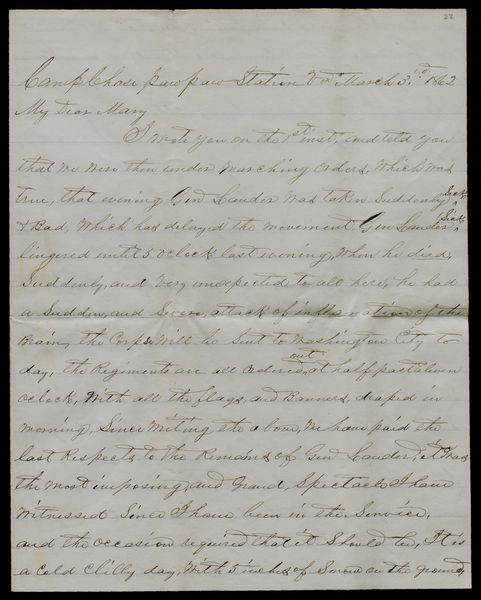 22
Camp Chase pawpaw Station Va March 3rd 1862
My Dear Mary
I wrote you on the 1st inst, and told you
that we were then under Marching orders, Which was
true, that evening Genl Lander was taken Suddenly Sick
& Bad, Which has delayed the movement, Gen Lander Sick
lingered until 5 oClock last evening, When he died,
Suddenly, and Very unexpected to all here, he had
a Sudden, and Severe, attack of inflamation of the
Brain, the Corps Will be Sent to Washington City to
day, the Regiments are all ordered out at half past eleven
oClock, With all the flags, and Banners, draped in
morning, Since Writing the above, We have paid the
last Respects to the Remains of Gen Lander, it Was
the most imposing, and Grand, Spectacle I have
Witnessed Since I have been in the Service,
and the occasion required that it Should be, It is
a Cold Chilly day, With 5 inches of Snow on the ground,